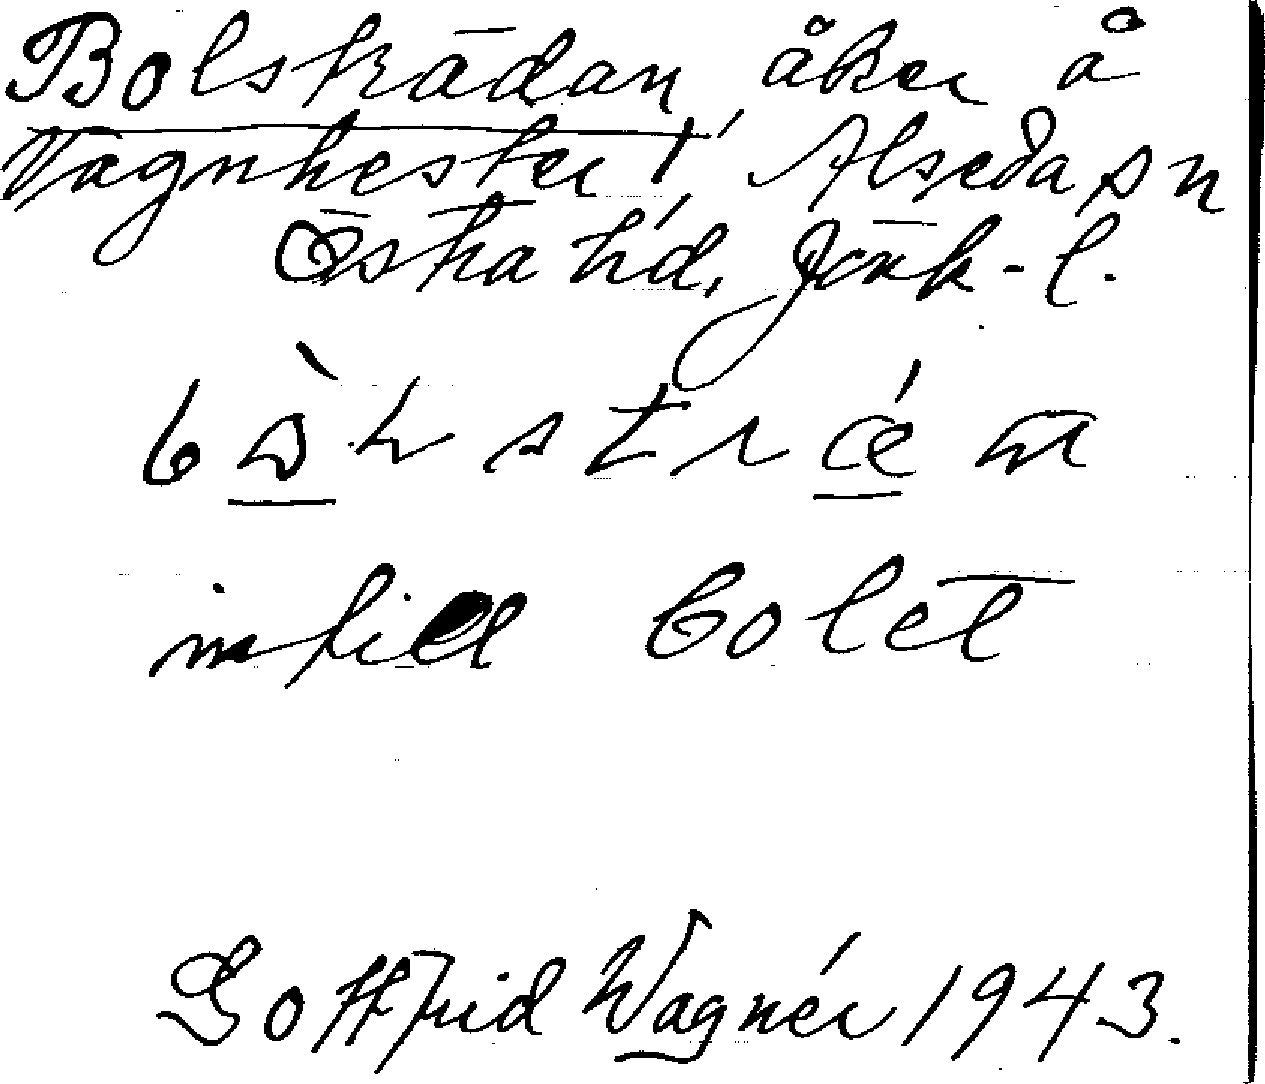 Bolsträdan, åker å
Vagnhester, Alseda sn
Östra hd, Jönk-l.
intill bolet
Gottfrid Wagnér 1943.